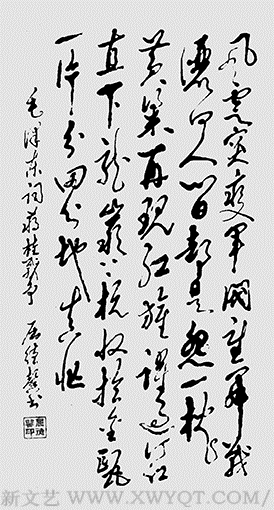 风雲突变军阀重开战
洒向人间都是怨一枕
黄粱再现红旗躍过汀江
直下龙岩上杭收拾金瓯
一片分田分地真忙
毛泽东词蒋桂战争
新文艺 WWW.XWYQT.COM/